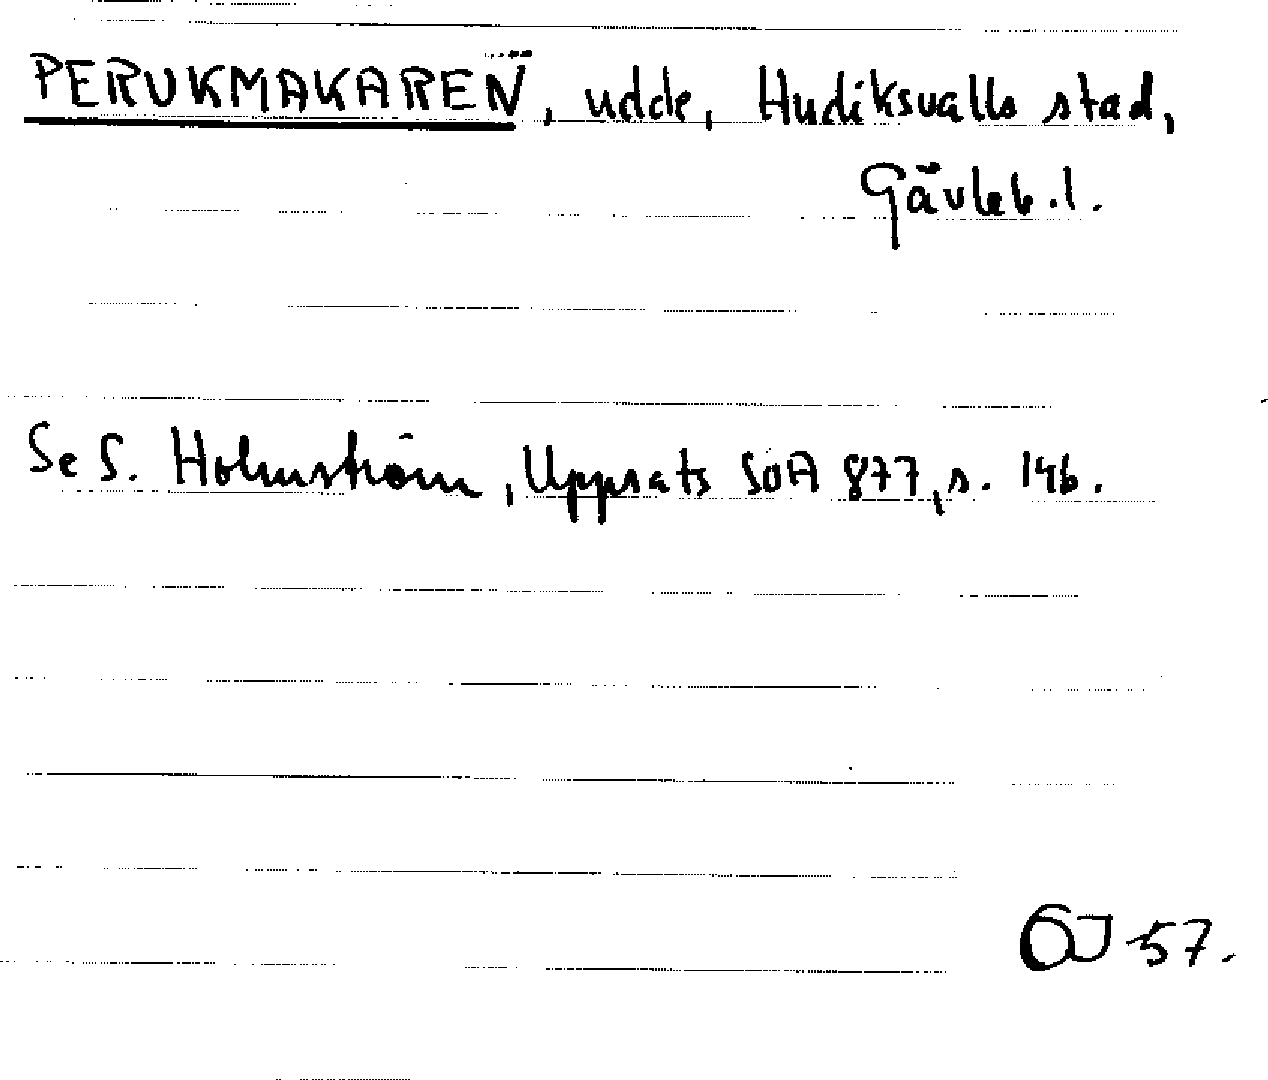 PERUKMAKAREN, udde, Hudiksvalls stad,
Gävleb.l.
Se S. Holmström, Uppsats SOA 877, s. 146.
OJ 57.